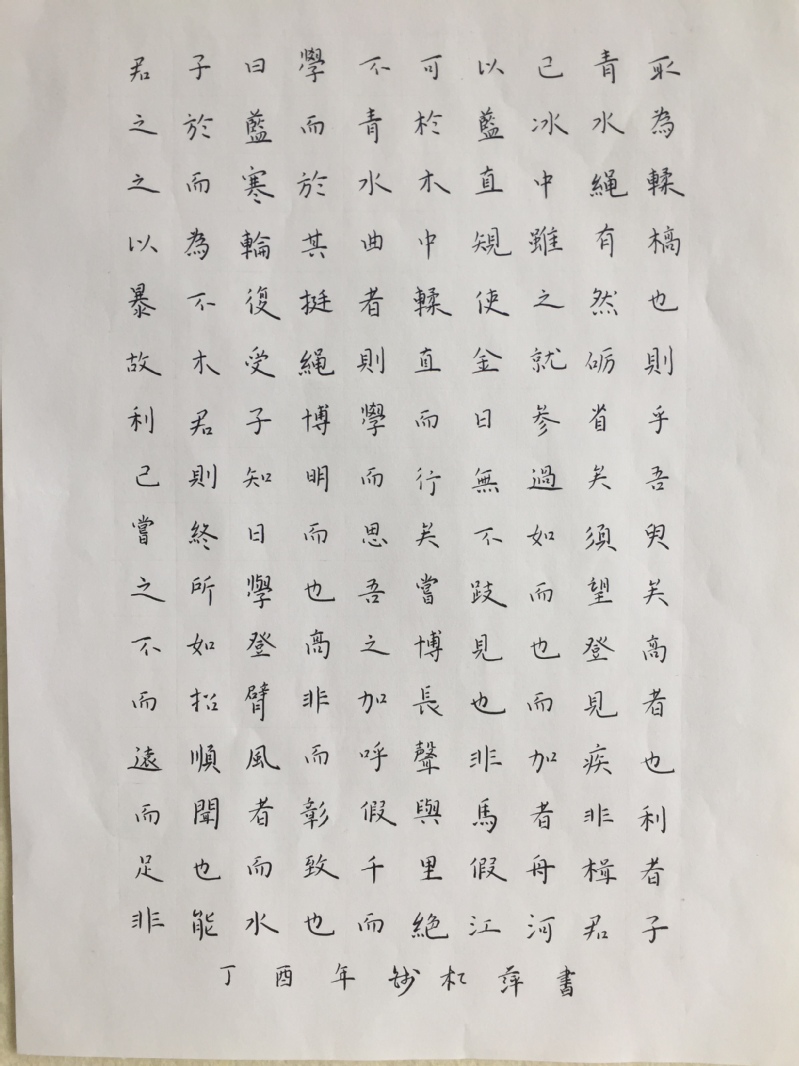 君子曰學不可以已青取
之於藍而青於藍冰水為
之而寒於水木直中繩輮
以為輪其曲中規雖有槁
暴不復挺者輮使之然也
故木受繩則直金就砺則
利君子博學而日參省乎
己則知明而行無過矣吾
嘗終日而思矣不如須臾
之所學也吾嘗跂而望矣
不如登高之博見也登高
而招臂非加長也而見者
遠順風而呼聲非加疾也
而聞者彰假與馬者非利
足也而致千里假舟楫者
非能水也而絕江河君子
丁酉年 萍書